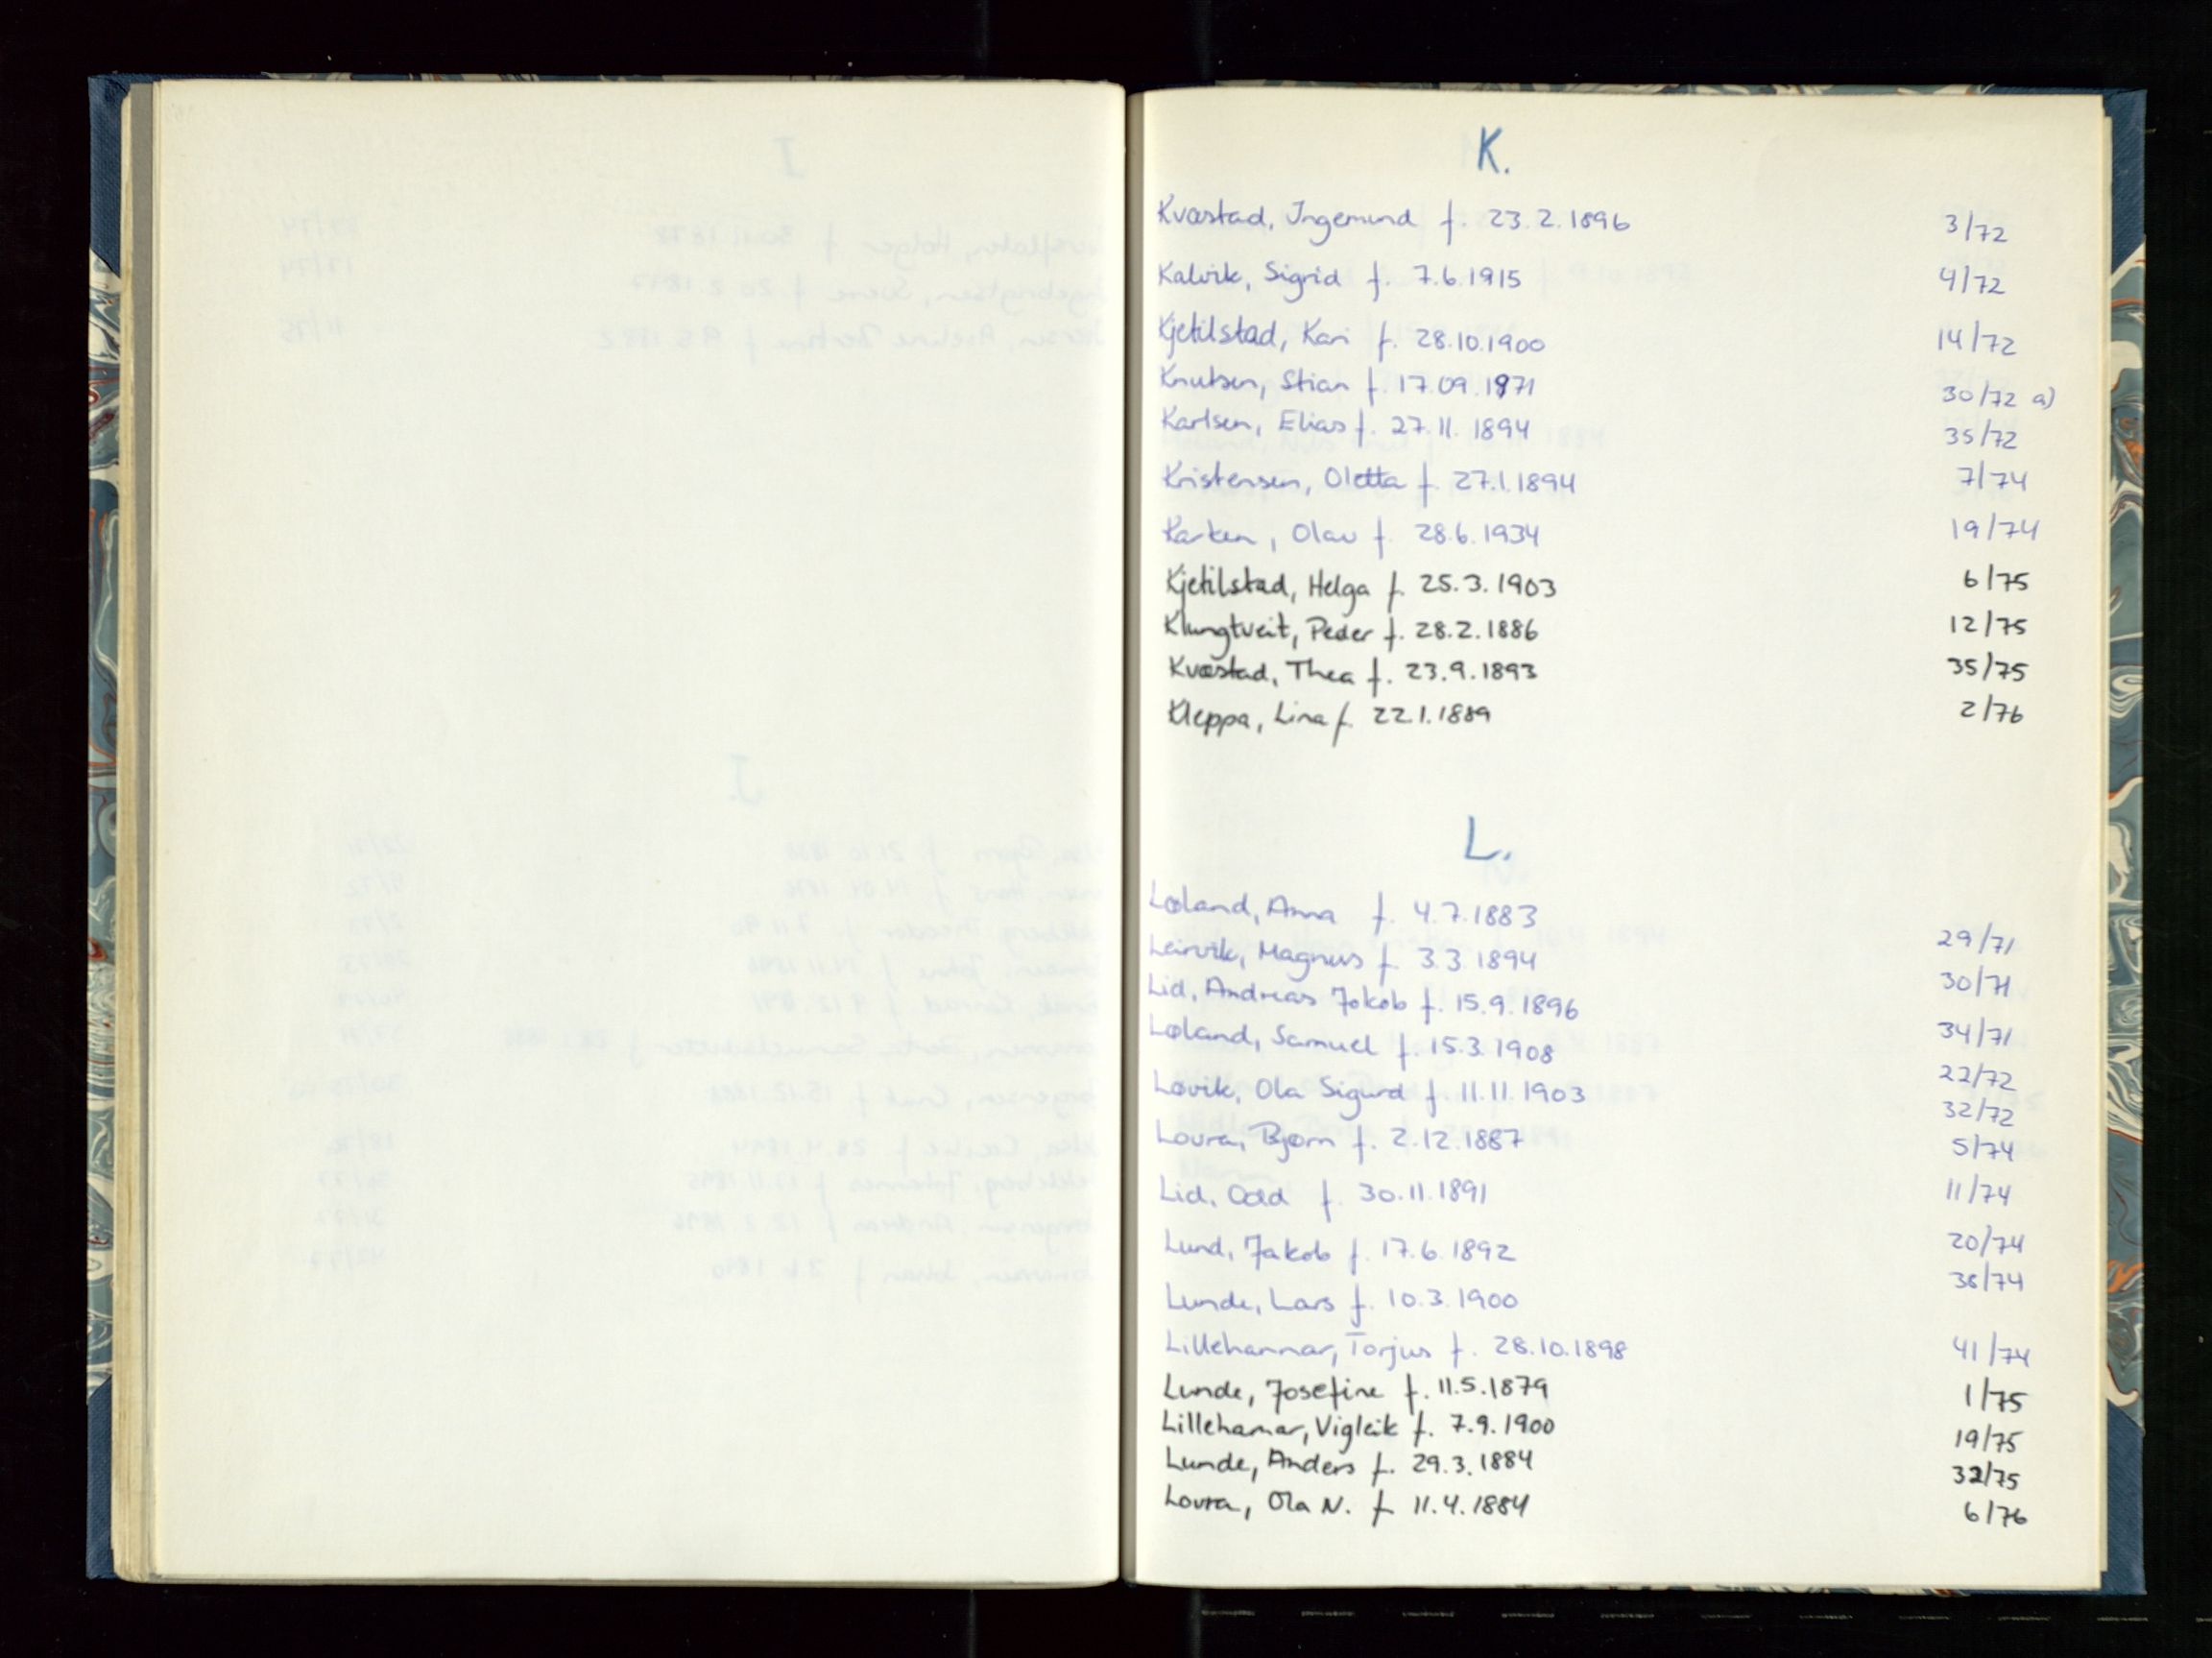 K.
Kvæstad, Ingemund f. 23.2.1896 3/72
Kalvik, Sigrid f. 7.6.1915 4/72
Kjetilstad, Kari f. 28.10.1900 14/72
Knutsen, Stian f. 17.09.1971 30/72 a)
Karlsen, Elias f. 27.11.1894 35/72
Kristensen, Oletta f. 27.1.1894 7/74
Karken, Olav f. 28.6.1934 19/74
Kjetilstad, Helga f. 25.3.1903 6/75
Klungtveit, Peder f. 28.2.1886 12/75
Kvæstad, Thea f. 23.9.1893 35/75
Kleppa, Lina f. 22.1.1889 2/76
L.
Løland, Anna f. 4.7.1883 29/71
Leirvik, Magnus f. 3.3.1894 30/71
Lid, Andreas Jokob f. 15.9.1896 34/71
Løland, Samuel f. 15.3.1908 22/72
Løvik, Ola Sigurd f 11.11.1903 32/72
Lovra, Bjørn f. 2.12.1887 5/74
Lid, Odd f. 30.11.1891 11/74
Lund, Jakob f. 17.6.1892 20/74
Lunde, Lars f. 10.3.1900 38/74
Lillehammar, Torjus f. 28.10.1898 41/74
Lunde, Josefine f. 11.5.1879 1/75
Lillehamar, Vigleik f. 7.9.1900 19/75
Lunde, Anders f. 29.3.1884 32/75
Lovra, Ola N. f 11.4.1884 6/76